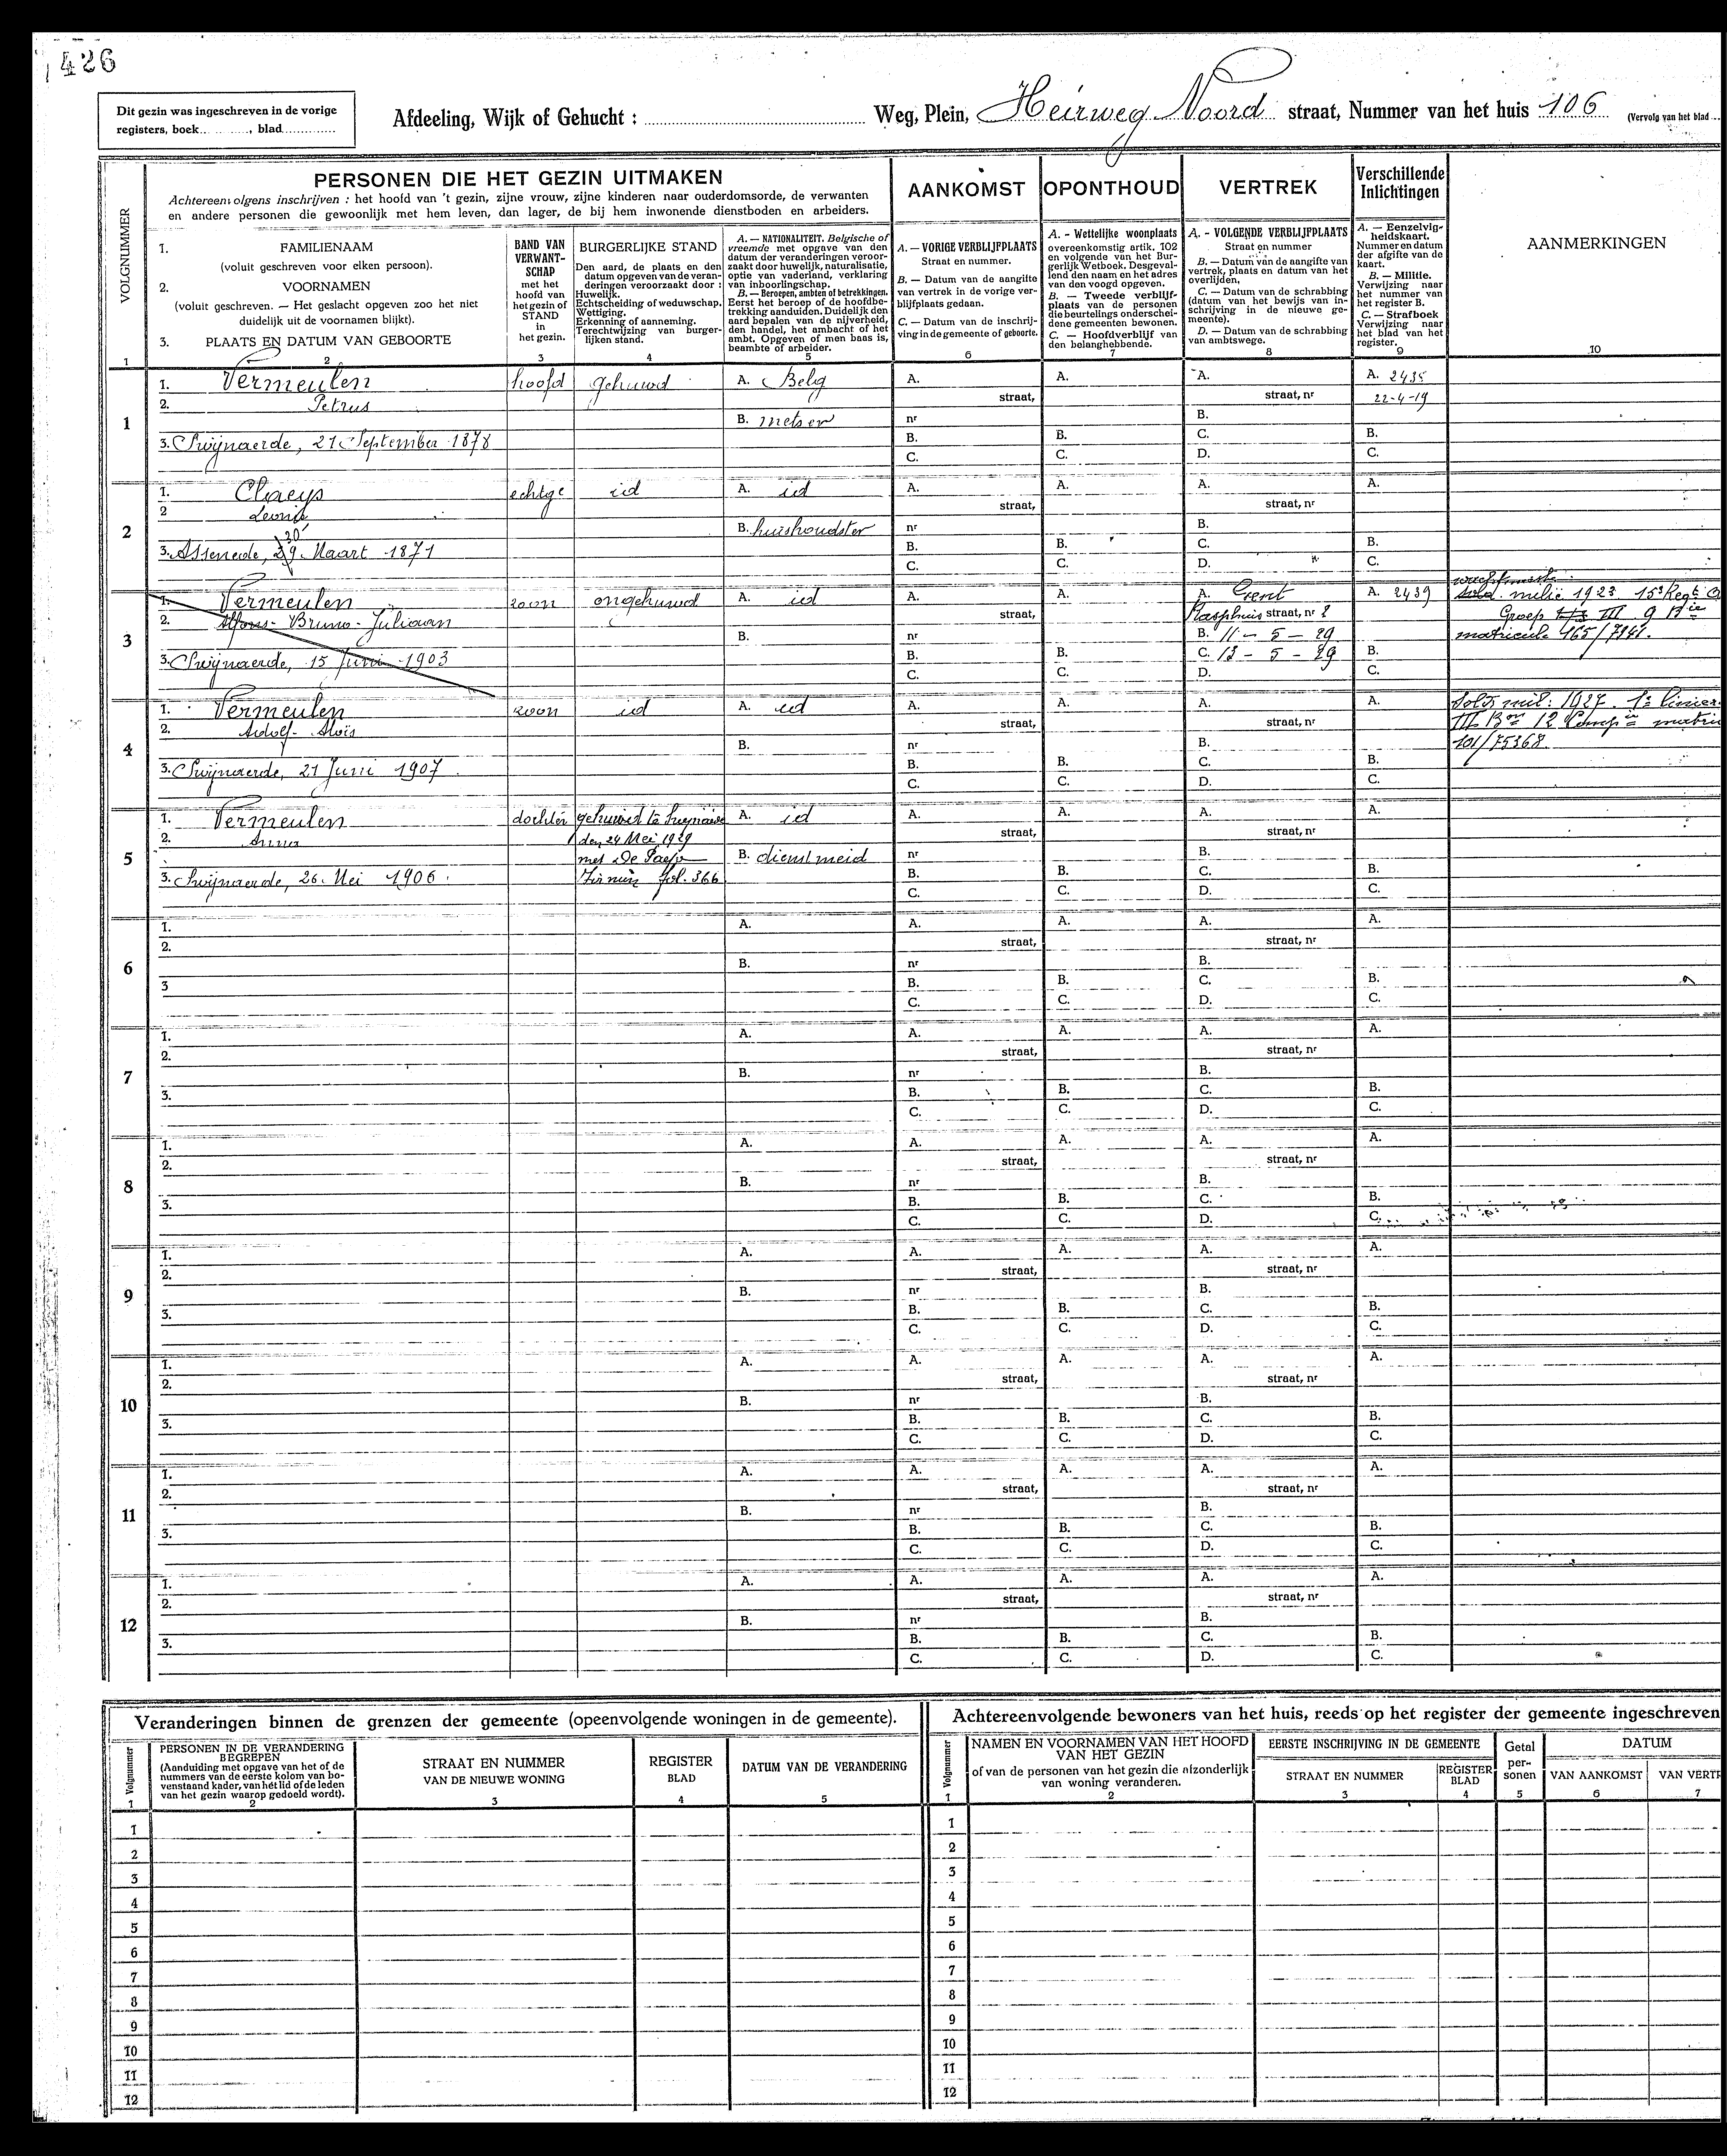 426
Dit gezin was ingeschreven in de vorige
registers, boek , blad
Afdeeling, Wijk of Gehucht : Weg, Plein, Heirweg Noord straat, Nummer van het huis 106 (Vervolg van het blad
PERSONEN DIE HET GEZIN UITMAKEN
Achtereenvolgens inschrijven : het hoofd van 't gezin, zijne vrouw, zijne kinderen naar ouderdomsorde, de verwanten
en andere personen die gewoonlijk met hem leven, dan lager, de bij hem inwonende dienstboden en arbeiders.
AANKOMST
OPONTHOUD
VERTREK
Verschillende
Inlichtingen
VOLGNUMMER
1
1. FAMILIENAAM
(voluit geschreven voor elken persoon).
2. VOORNAMEN
(voluit geschreven. — Het geslacht opgeven zoo het niet
duidelijk uit de voornamen blijkt).
3. PLAATS EN DATUM VAN GEBOORTE
2
BAND VAN
VERWANT-
SCHAP
met het
hoofd van
het gezin of
STAND
in
het gezin.
3
BURGERLIJKE STAND
Den aard, de plaats en den
datum opgeven van de veran-
deringen veroorzaakt door :
Huwelijk.
Echtscheiding of weduwschap.
Wettiging.
Erkenning of aanneming.
Terechtwijzing van burger-
lijken stand.
4
A. — NATIONALITEIT. Belgische of
vreemde met opgave van den
datum der veranderingen veroor-
zaakt door huwelijk, naturalisatie,
optie van vaderland, verklaring
van inboorlingschap.
B. — Beroepen, ambten of betrekkingen.
Eerst het beroep of de hoofdbe-
trekking aanduiden. Duidelijk den
aard bepalen van de nijverheid,
den handel, het ambacht of het
ambt. Opgeven of men baas is,
beambte of arbeider.
5
A. — VORIGE VERBLIJFPLAATS
Straat en nummer.
B. — Datum van de aangifte
van vertrek in de vorige ver-
blijfplaats gedaan.
C. — Datum van de inschrij-
ving in de gemeente of geboorte.
6
A. - Wettelijke woonplaats
overeenkomstig artik. 102
en volgende van het Bur-
gerlijk Wetboek. Desgeval-
lend den naam en het adres
van den voogd opgeven.
B. — Tweede verblijf-
plaats van de personen
die beurtelings onderschei-
dene gemeenten bewonen.
C. — Hoofdverblijf van
den belanghebbende.
7
A. - VOLGENDE VERBLIJFPLAATS
Straat en nummer
B. — Datum van de aangifte van
vertrek, plaats en datum van het
overlijden.
C. — Datum van de schrabbing
(datum van het bewijs van in-
schrijving in de nieuwe ge-
meente).
D. — Datum van de schrabbing
van ambtswege.
8
A. — Eenzelvig-
heidskaart.
Nummer en datum
der afgifte van de
kaart.
B. — Militie.
Verwijzing naar
het nummer van
het register B.
C. — Strafboek
Verwijzing naar
het blad van het
register.
9
AANMERKINGEN
10
1
1. Vermeulen hoofd gehuwd A. Belg A. A. A. A. 2435
2. Petrus straat, straat, nr 22-4-19
B. metser nr B.
3. Swijnaerde, 21 September 1878 B. B. C. B.
C. C. D. C.
2
1. Claeys echtge id A. id A. A. A. A.
2 Leonie straat, straat, nr
30 B. huishoudster nr B.
3. Assenede, 29 Maart 1871 B. B. C. B.
C. C. D. C.
3
1. Vermeulen zoon ongehuwd A. id A. A. A. Gent A. 2439 milic 1923 15e Regt
2. Alfons - Bruno - Juliaan straat, Rasphuis straat, nr 2 Groep III 9 Bie
B. nr B. 11 - 5 - 29 matricule 165/7941.
3. Swijnaerde, 15 Juni 1903 B. B. C. 13 - 5 - 29 B.
C. C. D. C.
4
1. Vermeulen zoon id A. id A. A. A. A. Sold mil: 1927. 1e linier
2. Adolf - Aloïs straat, straat, nr III Bon 12 Compie matric
B. nr B. 101/75368
3. Swijnaerde, 21 Juni 1907 B. B. C. B.
C. C. D. C.
5
1. Vermeulen dochter gehuwd te Swijnaerde A. id A. A. A. A.
2. Anna den 24 Mei 1929 straat, straat, nr
met De Paepe B. dienstmeid nr B.
3. Swijnaerde, 26 Mei 1906. Firmin fol. 366 B. B. C. B.
C. C. D. C.
6
1. A. A. A. A. A.
2. straat, straat, nr
B. nr B.
3 B. B. C. B.
C. C. D. C.
7
1. A. A. A. A. A.
2. straat, straat, nr
B. nr B.
3. B. B. C. B.
C. C. D. C.
8
1. A. A. A. A. A.
2. straat, straat, nr
B. nr B.
3. B. B. C. B.
C. C. D. C.
9
1. A. A. A. A. A.
2. straat, straat, nr
B. nr B.
3. B. B. C. B.
C. C. D. C.
10
1. A. A. A. A. A.
2. straat, straat, nr
B. nr B.
3. B. B. C. B.
C. C. D. C.
11
1. A. A. A. A. A.
2. straat, straat, nr
B. nr B.
3. B. B. C. B.
C. C. D. C.
12
1. A. A. A. A. A.
2. straat, straat, nr
B. nr B.
3. B. B. C. B.
C. C. D. C.
Veranderingen binnen de grenzen der gemeente (opeenvolgende woningen in de gemeente).
Volgnummer
1
PERSONEN IN DE VERANDERING
BEGREPEN
(Aanduiding met opgave van het of de
nummers van de eerste kolom van bo-
venstaand kader, van het lid of de leden
van het gezin waarop gedoeld wordt).
2
STRAAT EN NUMMER
VAN DE NIEUWE WONING
3
REGISTER
BLAD
4
DATUM VAN DE VERANDERING
5
1
2
3
4
5
6
7
8
9
10
11
12
Achtereenvolgende bewoners van het huis, reeds op het register der gemeente ingeschreven
Volgnummer
1
NAMEN EN VOORNAMEN VAN HET HOOFD
VAN HET GEZIN
of van de personen van het gezin die afzonderlijk
van woning veranderen.
2
EERSTE INSCHRIJVING IN DE GEMEENTE
STRAAT EN NUMMER
3
REGISTER
BLAD
4
Getal
per-
sonen
5
DATUM
VAN AANKOMST
6
VAN VERTR
7
1
2
3
4
5
6
7
8
9
10
11
12